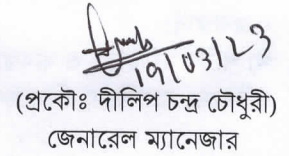 19/03/23
(প্রকৌঃ দীলিপ চন্দ্র চৌধুরী)
জেনারেল ম্যানেজার